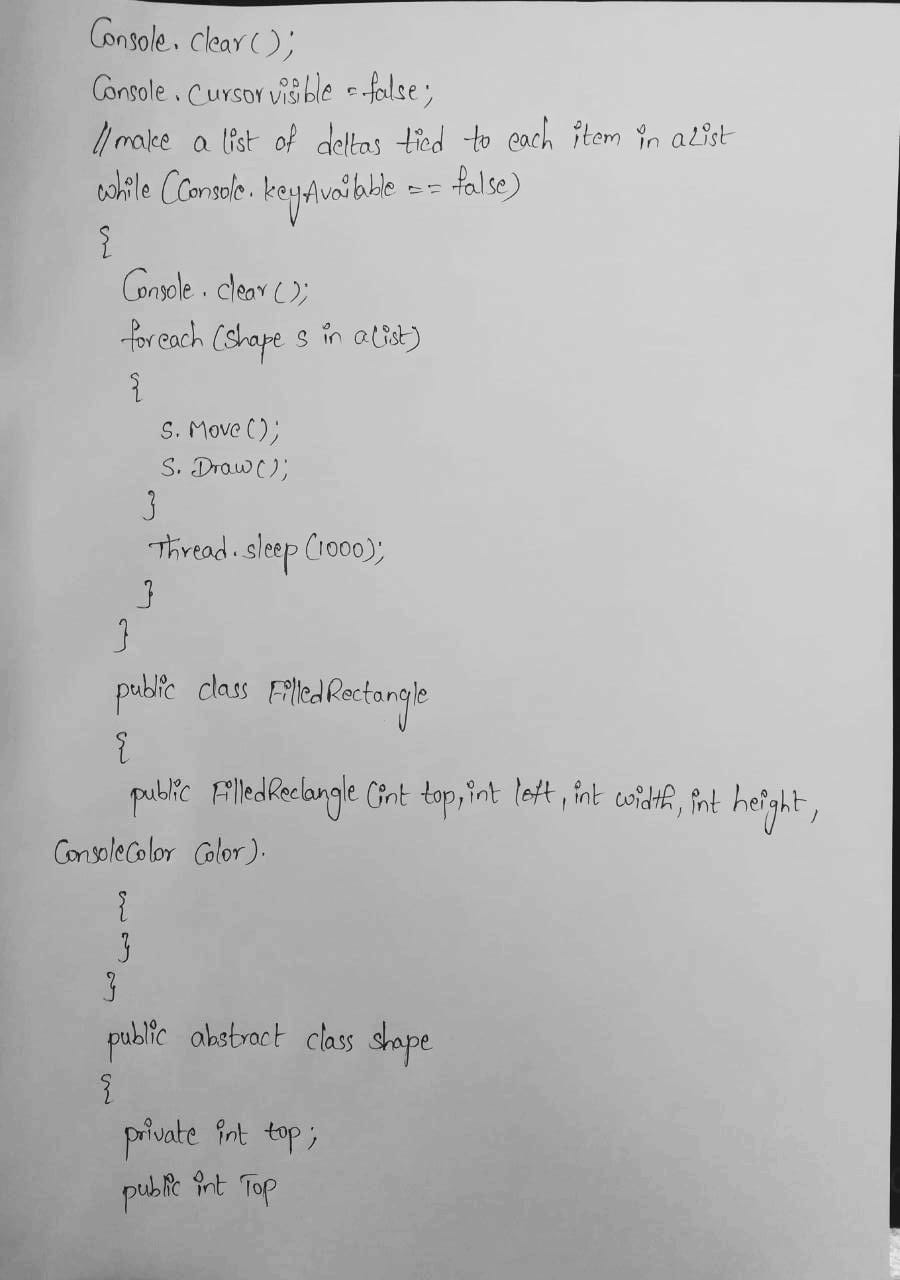 Console. Clear();
Console. Cursorvisible = false;
//make a list of deltas tied to each item in alist
while (Console. keyAvailable == false)
{
Console. clear();
foreach (Shape s in alist)
{
S. Move();
S. Draw();
}
Thread. sleep (1000);
}
}
public class FilledRectangle
{
public FilledReclangle (int top, int left, int width, int height,
ConsoleColor Color).
{
}
}
public abstract class shape
{
private int top;
public int Top